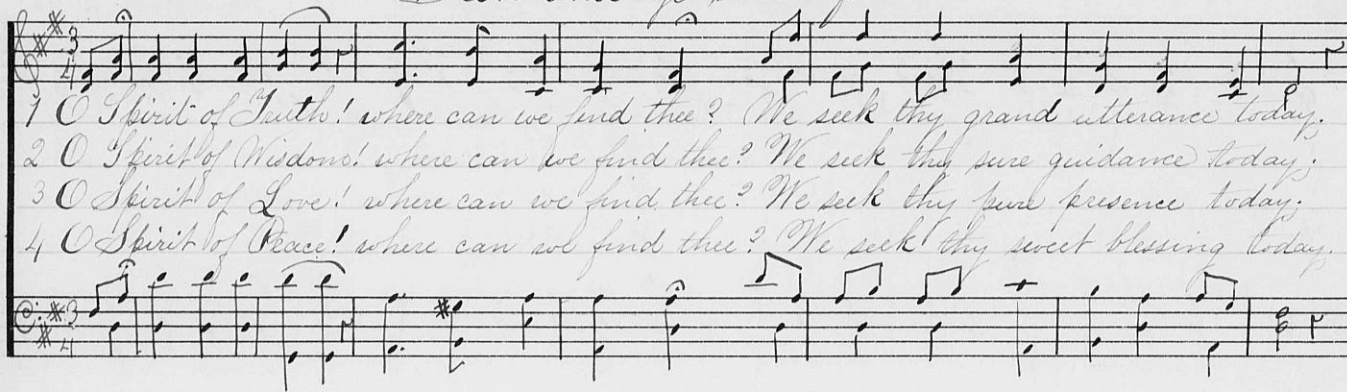 1 O Spirit of Truth! where can we find thee? We seek thy grand utterance today.
2 O Spirit of Wisdom! where can we find thee? We seek thy sure guidance today.
3 O Spirit of Love! where can we find thee? We seek thy pure presence today.
4 O Spirit of Peace! where can we find thee? We seek thy sweet blessing today.